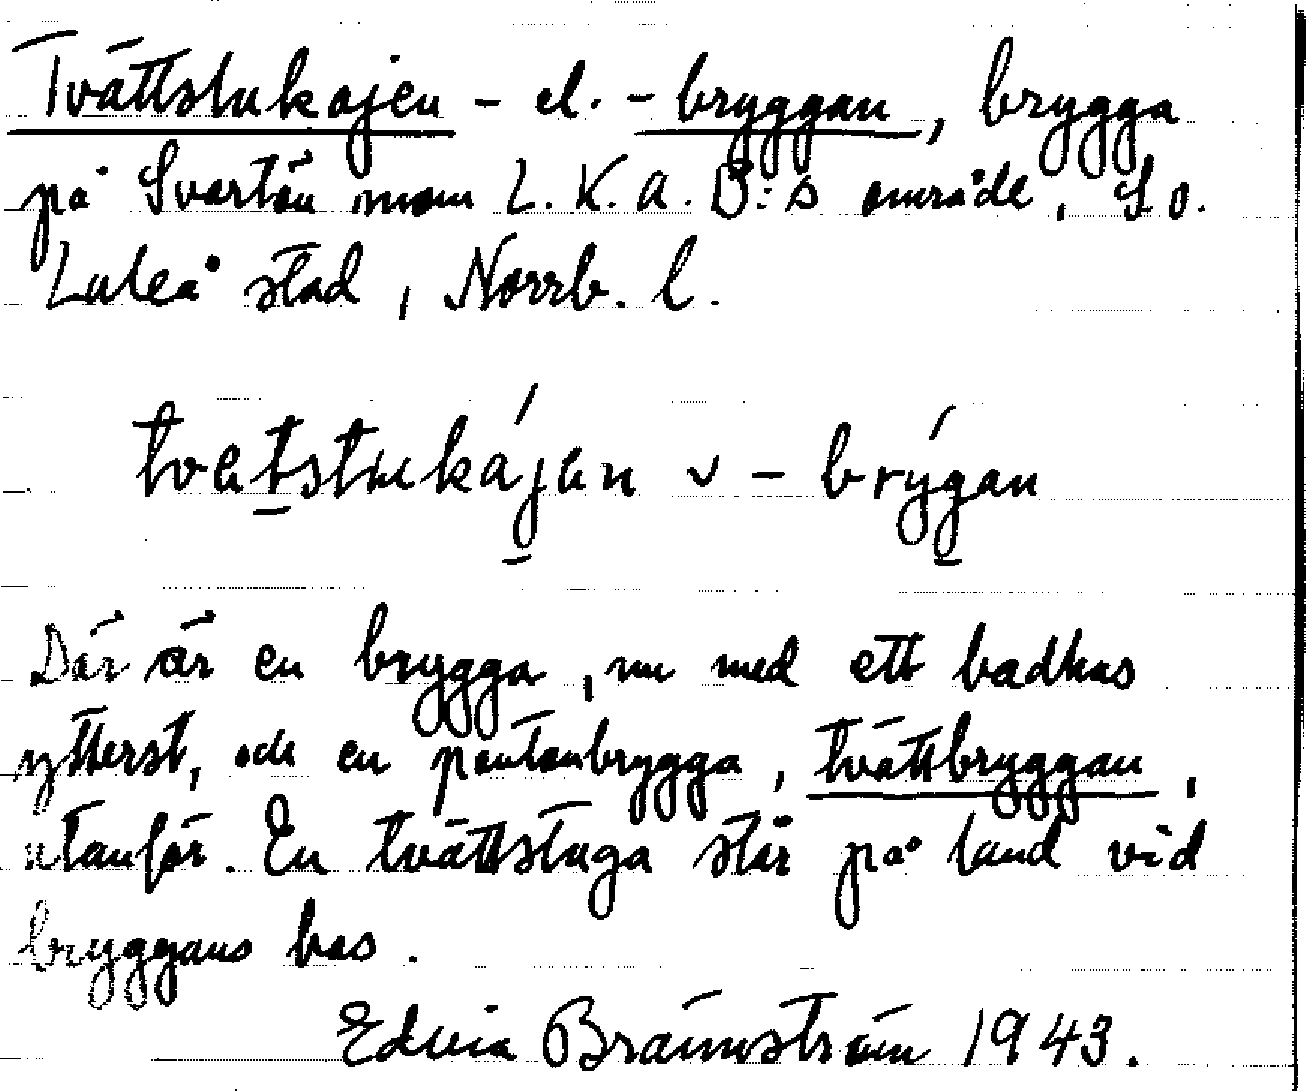 Tvättstukajen - el. - bryggan, brygga
på Svartön inom L.K.A.B:s område, SO.
Luleå stad, Norrb. l.
tvetstukájen v - brýgan
Där är en brygga, nu med ett badhus
ytterst, och en pontonbrygga, tvättbryggan,
utanför. En tvättstuga står på land vid
bryggans bas.
Edvin Brännström 1943.